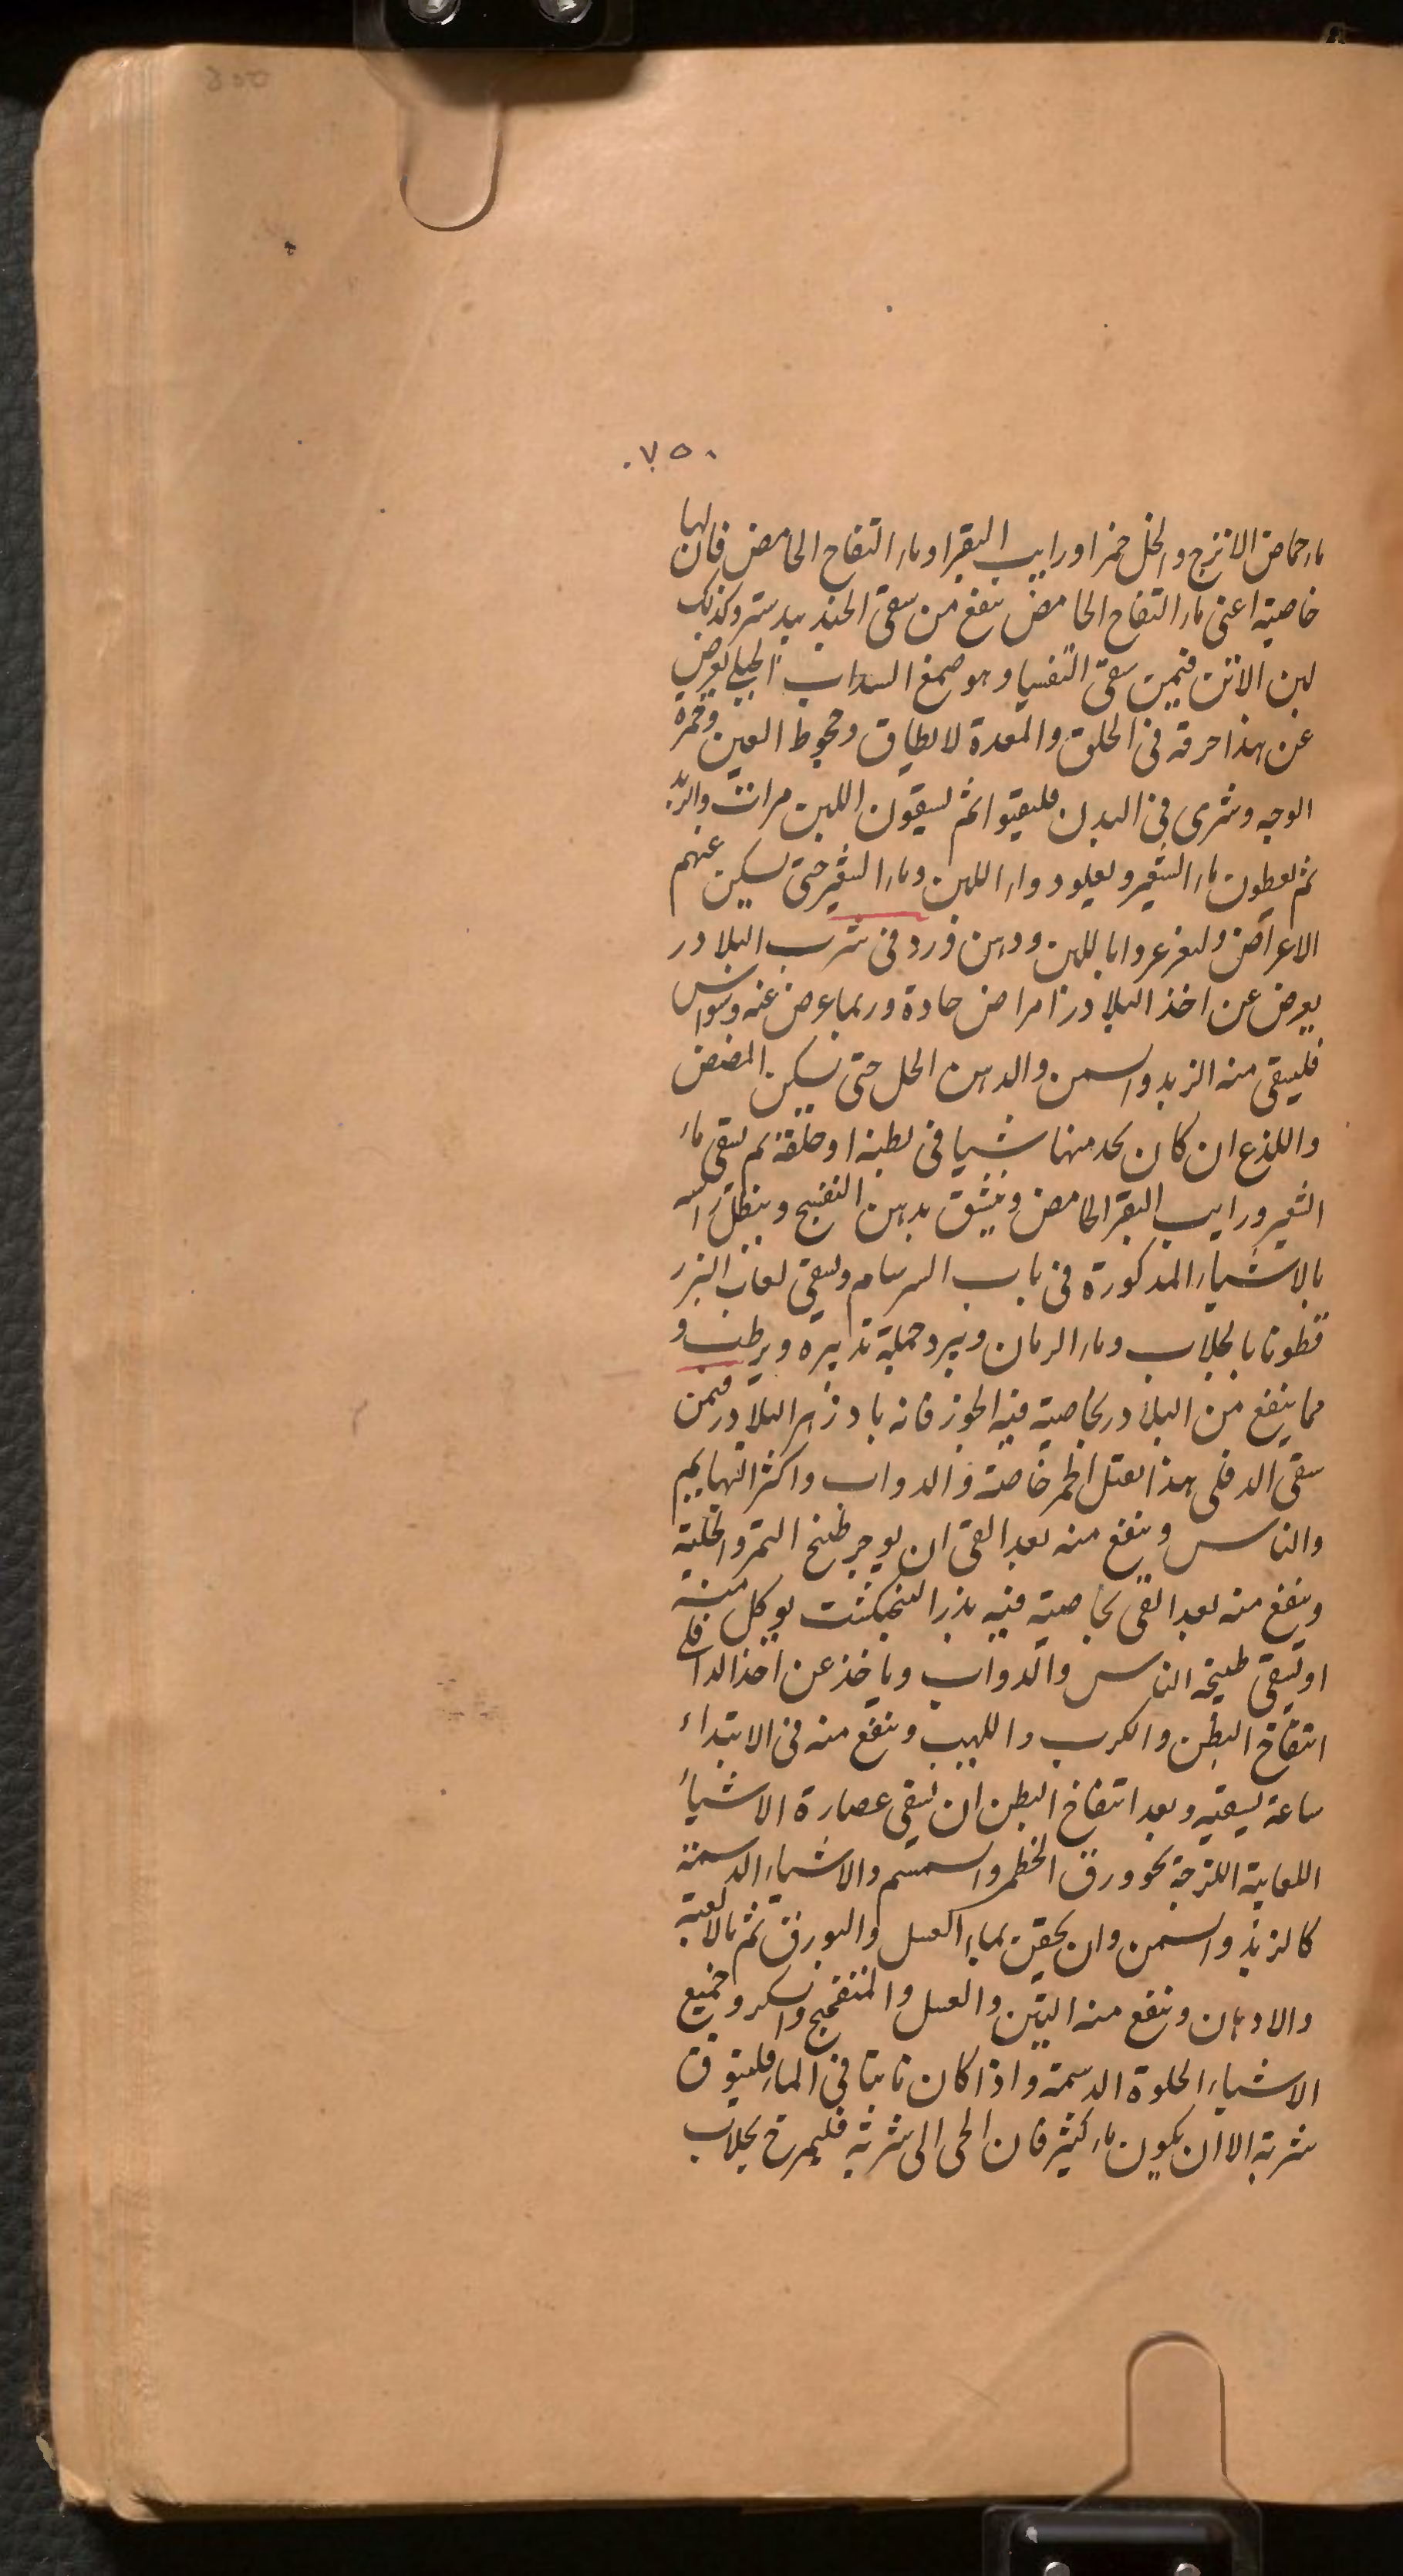 .٧٥٠
ماء حماض الاترج والخل خمر او رايب البقر او ماء التفاح الحامض فان لها
خاصية اعنى ماء التفاح الحامض ينفع من سقى الجند بيدستر وكذلك
لبن الاتن فيمن سقى التفسيا وهو صمغ السداب الجبلى يعرض
عن هذا حرقة فى الحلق والمعدة لا يطاق وجحوظ العين وحمرة
الوجه وشرى فى البدن فليقيوا ثم يسقون اللبن مرات والزبد
ثم يعطون ماء الشعير ويعاود واء اللبن وماء الشعير حتى يسكن عنهم
الاعراض وليغرغروا باللبن ودهن ورد فى شرب البلادر
يعرض عن اخذ البلادر امراض حادة وربما عرض عنه وسواس
فليسقى منه الزبد والسمن والدهن الحل حتى يسكن المضض
واللذع ان كان يجد منها شيا فى بطنه او حلقه ثم يسقى ماء
الشعير ورايب البقر الحامض وينشق بدهن البنفسج وينطل راسه
بالاشياء المذكورة فى باب السرسام ويسقى لعاب البزر
قطونا بالجلاب وماء الرمان ويبرد جملة تدبيره ويرطب و
مما ينفع من البلادر بخاصية فيه الجوز فانه بادزهر البلادر فيمن
سقى الدفلى هذا يقتل الحمر خاصة والدواب واكثر البهايم
والناس وينفع منه بعد القى ان يوجر طبيخ التمر والحلبة
وينفع منه بعد القى بخاصية فيه بذر البنجنكشت يوكل منه
او يسقى طبيخه الناس والدواب وياخذ عن اخذ الدفلى
انتفاخ البطن والكرب واللهيب وينفع منه فى الابتداء
ساعة يسقيه وبعد انتفاخ البطن ان يسقى عصارة الاشياء
اللعابية اللزجة نحو ورق الخطمر والسمسم والاشياء الدسمة
كالزبد والسمن وان يحقن بماء العسل والبورق ثم بالالعبة
والادهان وينفع منه التين والعسل والمنفحج والسكر وجميع
الاشياء الحلوة الدسمة واذا كان نابتا فى الماء فليتوق
شربه الا ان يكون ماء كثير فان الجى الى شربه فليمزج بجلاب